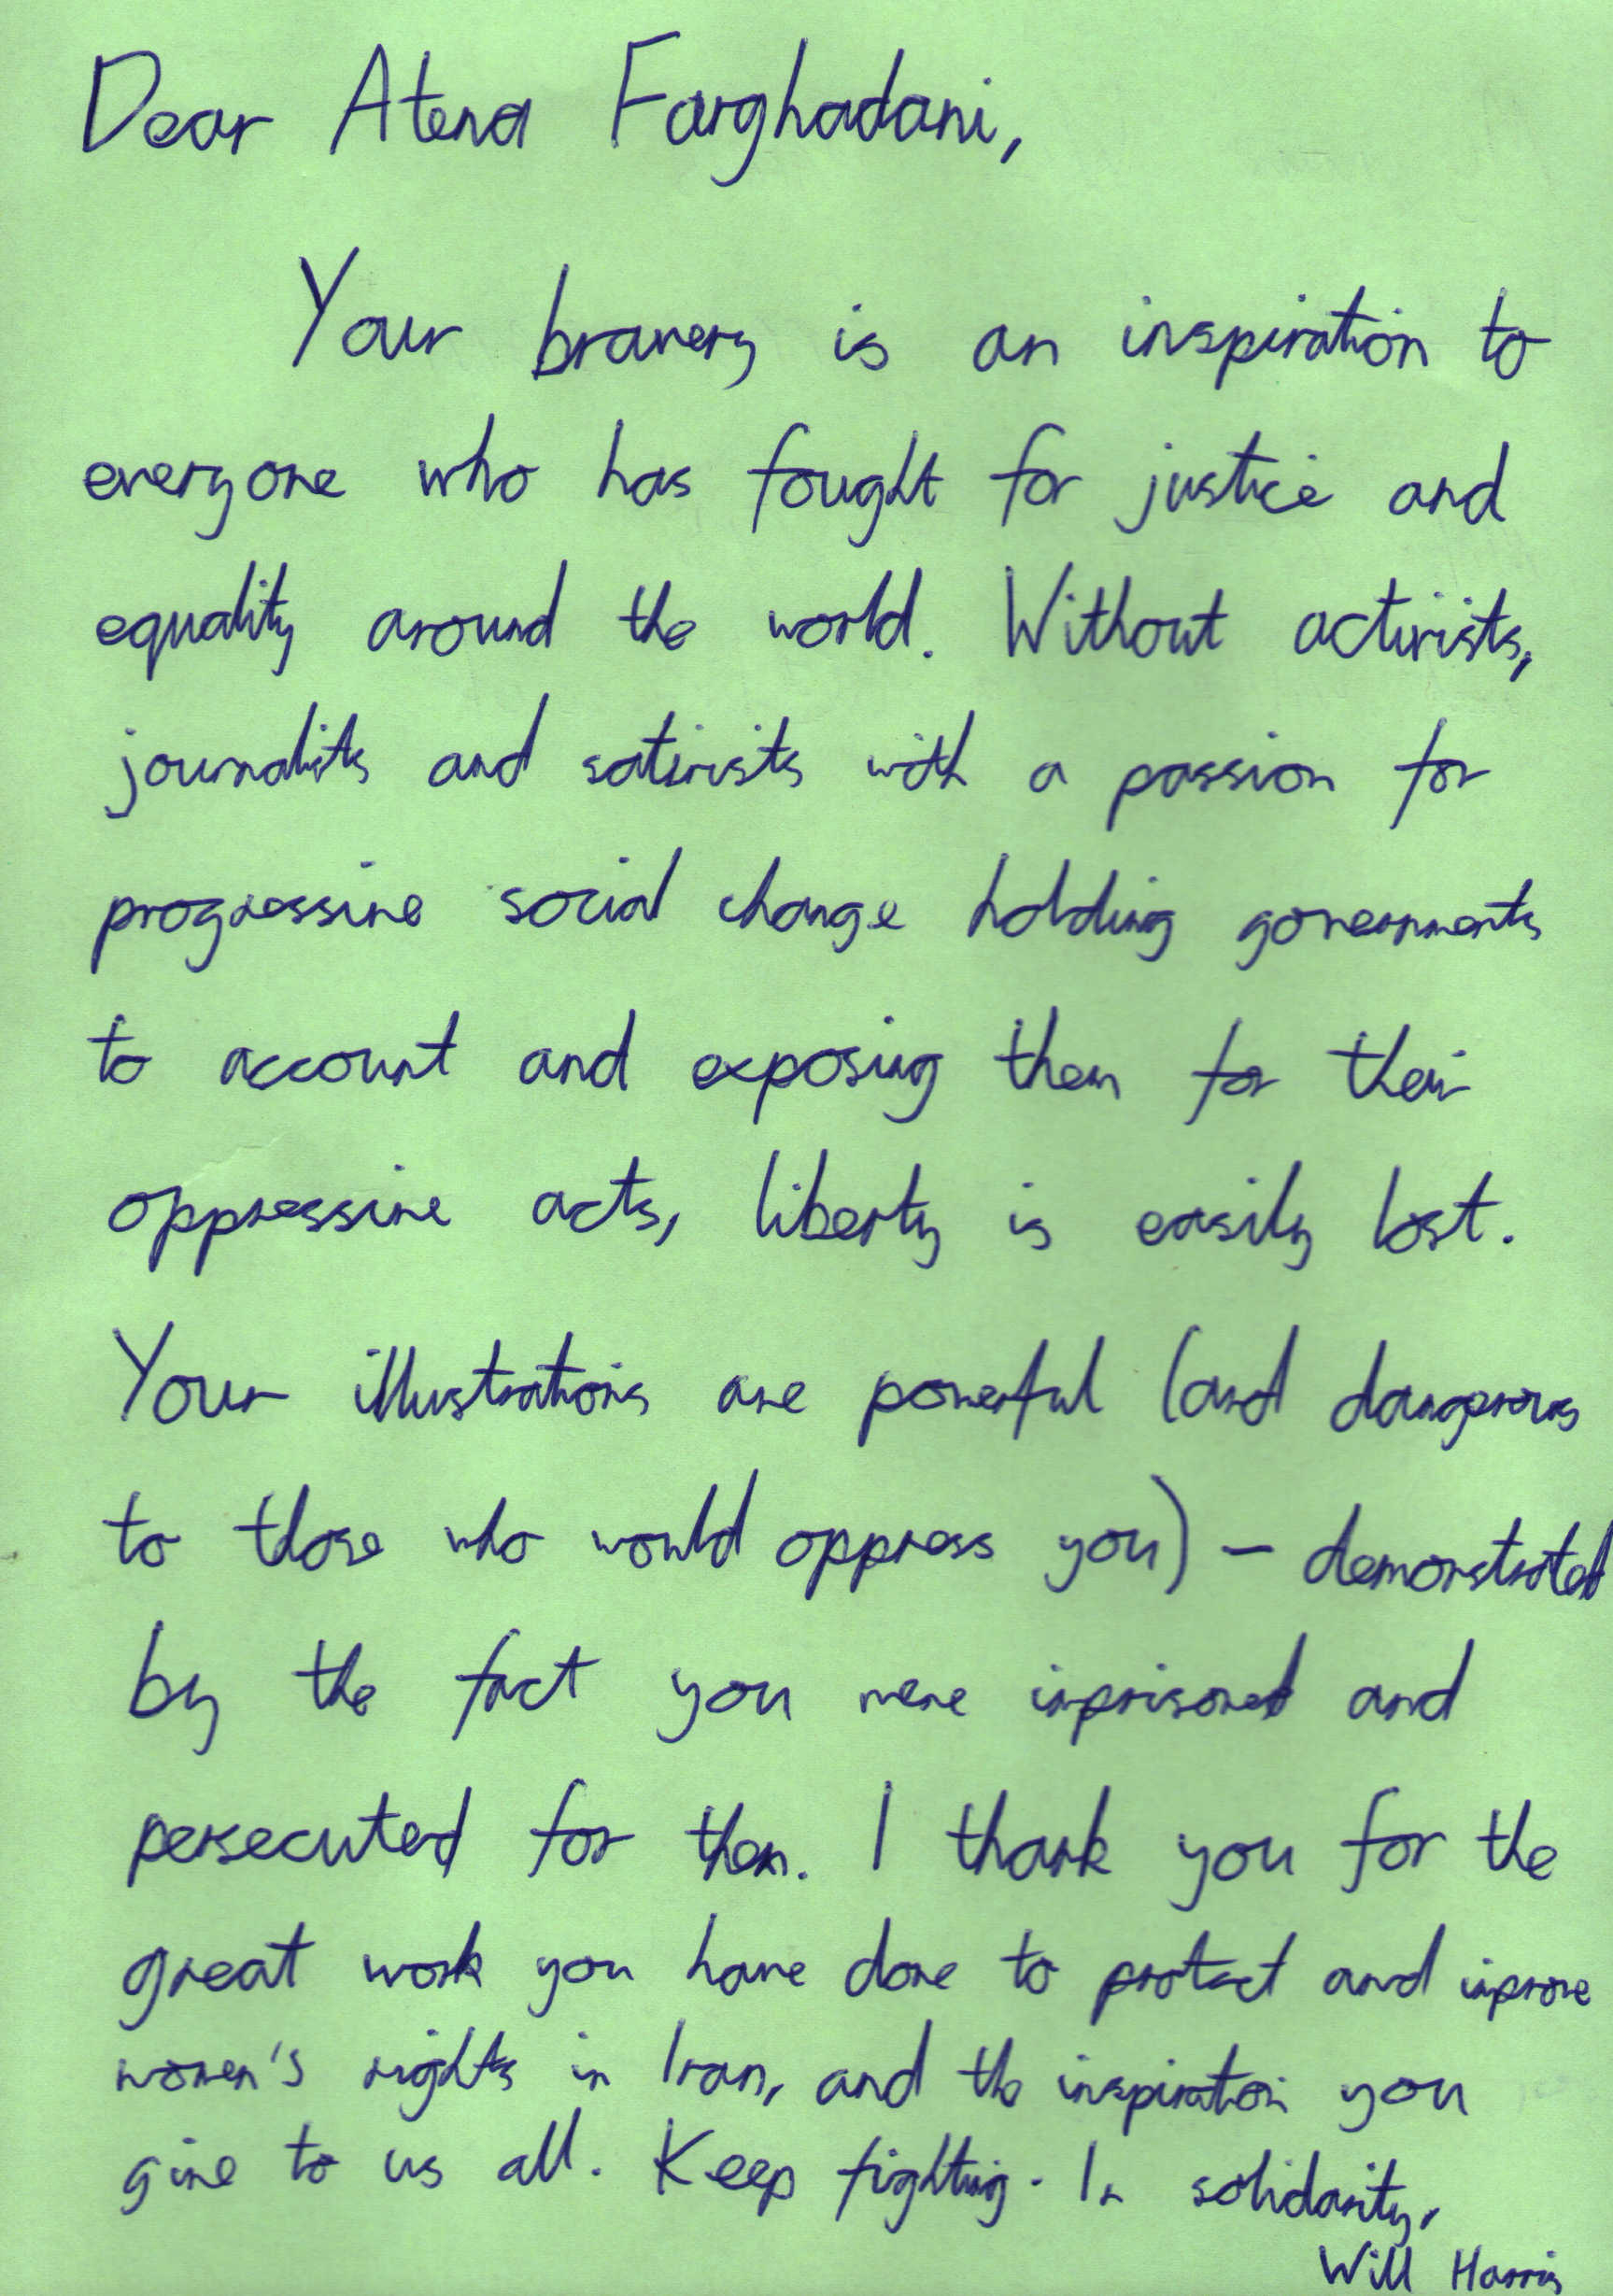 Dear Atena Farghadani,
Your bravery is an inspiration to
everyone who has fought for justice and
equality around the world. Without activists,
journalists and satirists with a passion for
progressive social change holding governments
to account and exposing them for their
oppressive acts, liberty is easily lost.
Your illustrations are powerful (and dangerous
to those who would oppress you) – demonstrated
by the fact you were imprisoned and
persecuted for them. I thank you for the
great work you have done to protect and improve
women's rights in Iran, and the inspiration you
give to us all. Keep fighting. In solidarity,
Will Harris